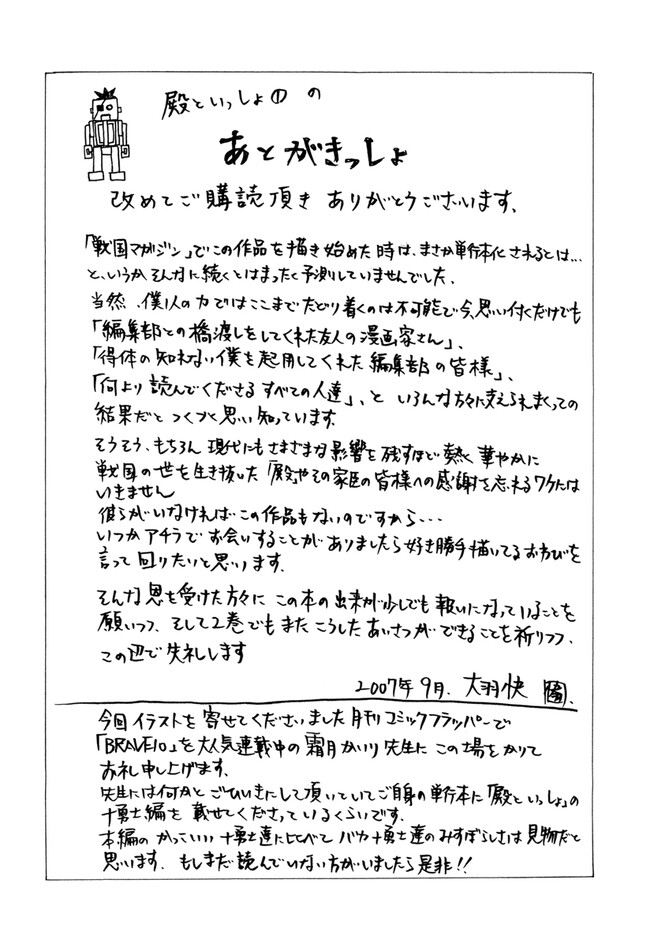 殿といっしょ①の
あとがきっしょ
改めてご購読頂き ありがとうございます、
「戦国マガジン」でこの作品を描き始めた時は、まさか単行本化されるとは…
と、いうか、そんなに続くとはまったく予測していませんでした、
当然、僕1人の力ではここまでたどり着くのは不可能で今、思い付くだけでも
「編集部との橋渡しをしてくれた友人の漫画家さん」、
「得体の知れない僕を起用してくれた編集部の皆様」、
「何より読んでくださるすべての人達」、と いろんな方々に支えられまくっての
結果だと つくづく思い知っています、
そうそう、もちろん 現代にもさまざまな影響を残すほど熱く華やかに
戦国の世を生き抜いた「殿」やその家臣の皆様への感謝を忘れるワケには
いきません
彼らがいなければこの作品もないのですから・・・
いつかアチラでお会いすることがありましたら好き勝手描いてるおわびを
言って回りたいと思います、
そんな恩を受けた方々に この本の出来が少しでも報いになっていることを
願いつつ、そして2巻でもまたこうしたあいさつができることを祈りつつ、
この辺で失礼します
2007年9月、大羽快
今回イラストを寄せてくださいました月刊コミックフラッパーで
「BRAVE10」を大人気連載中の霜月かいり先生に この場をかりて
お礼申し上げます、
先生には何かとごひいきにして頂いていてご自身の単行本に「殿といっしょ」の
十勇士編を載せてくださっているくらいです、
本編の かっこいい十勇士達に比べて バカ十勇士達のみすぼらしさは見物だと
思います、もしまだ読んでいない方がいましたら是非!!